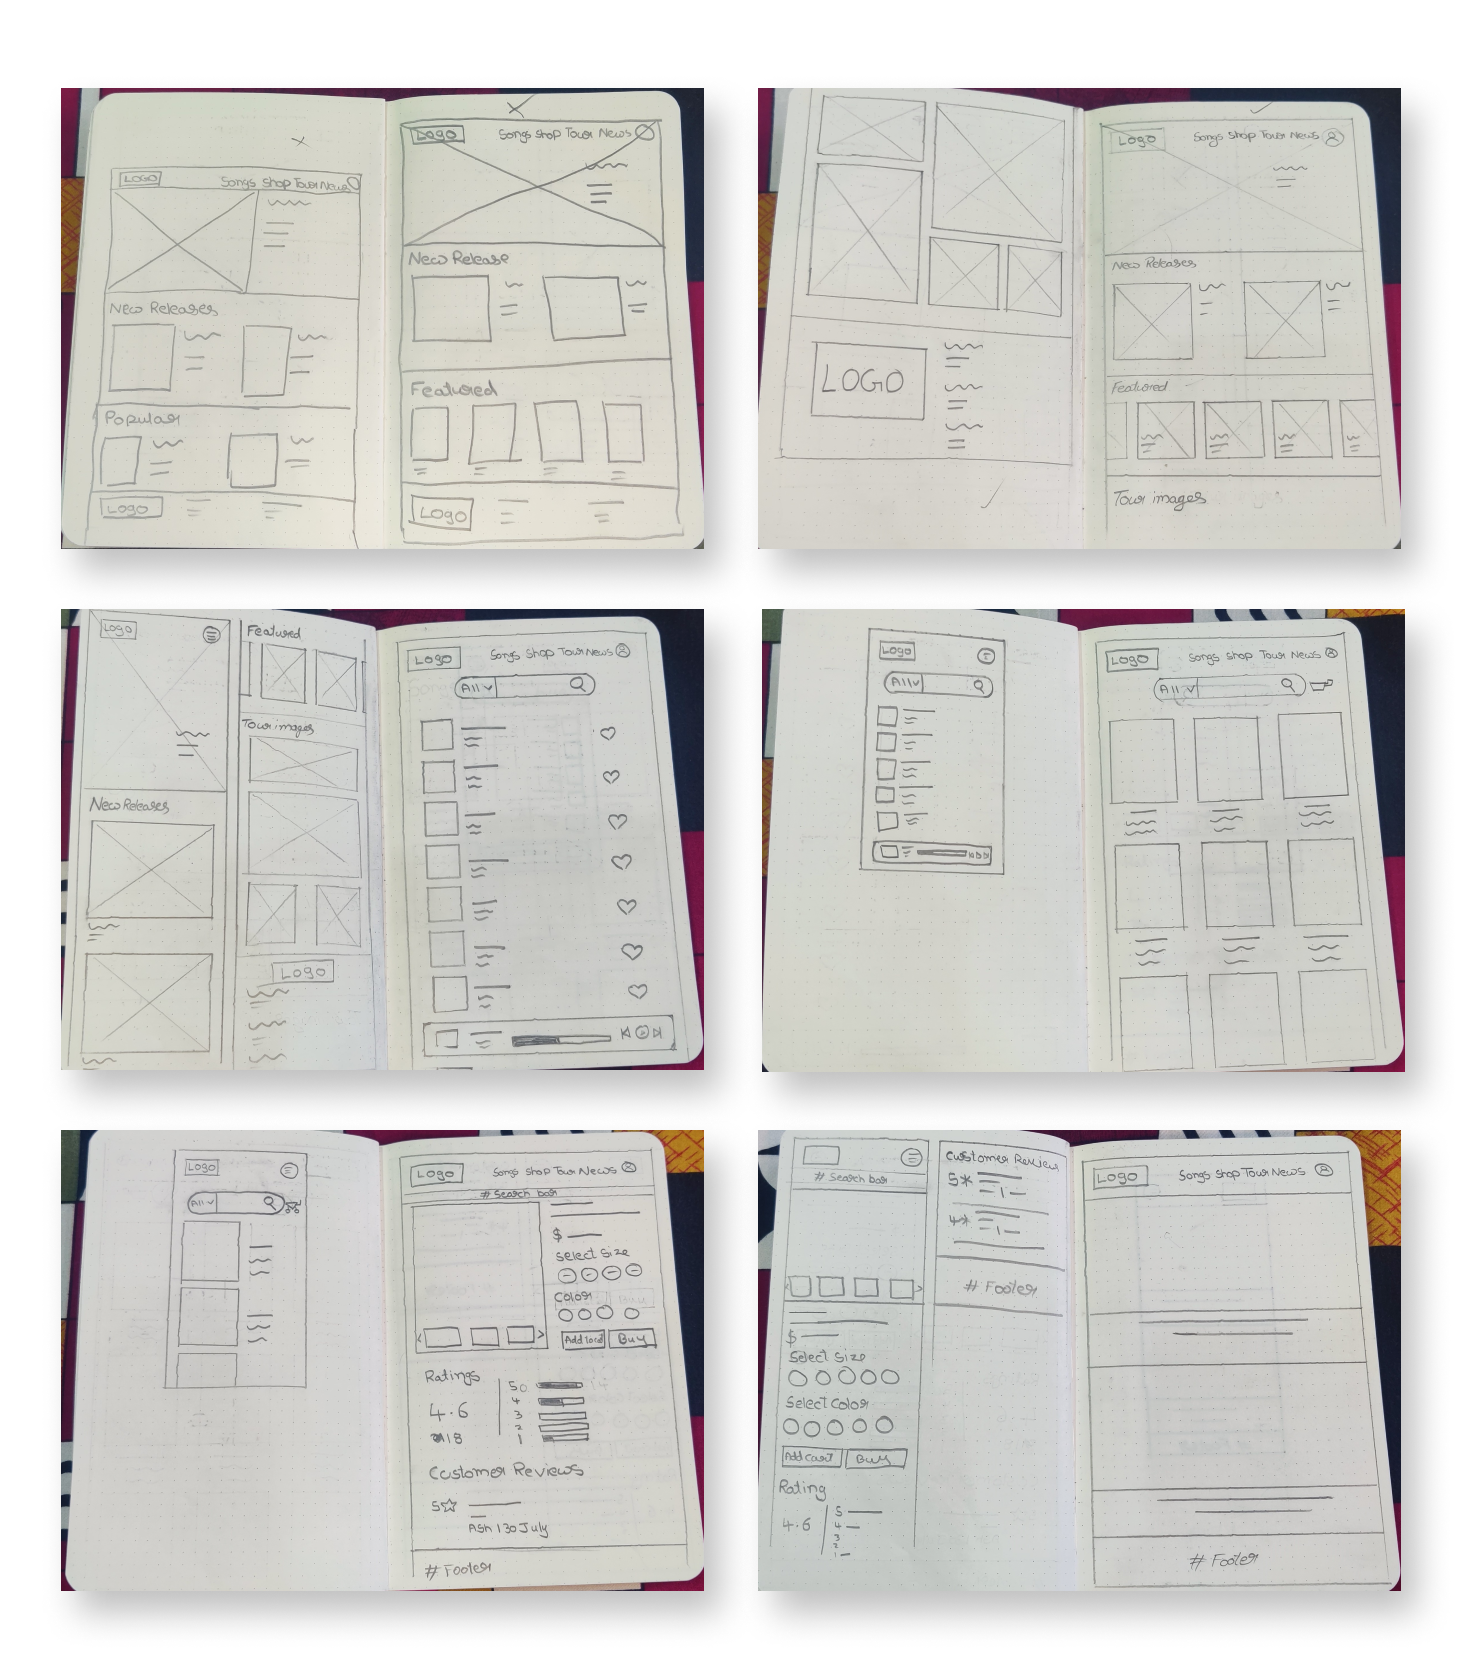 Logo
Songs Shop Tour News
New Releases
Popular
Logo
Logo
Songs Shop Tour News
New Release
Featured
Logo
LOGO
Logo
Songs Shop Tour News
New Releases
Featured
Tour images
Logo
New Releases
Featured
Tour images
Logo
Logo
Songs Shop Tour News
All
Logo
All
Logo
Songs Shop Tour News
All
Logo
All
Logo
Songs Shop Tour News
# Search bar
$
Select Size
Color
Buy
Ratings
4.6
18
5
4
3
2
1
Customer Reviews
5
Ash | 30 July
# Footer
# Search bar
$
Select Size
Select Color
Add cart
Buy
Rating
4.6
5
4
3
2
1
Customer Review
5*
4*
# Footer
Logo
Songs Shop Tour News
# Footer